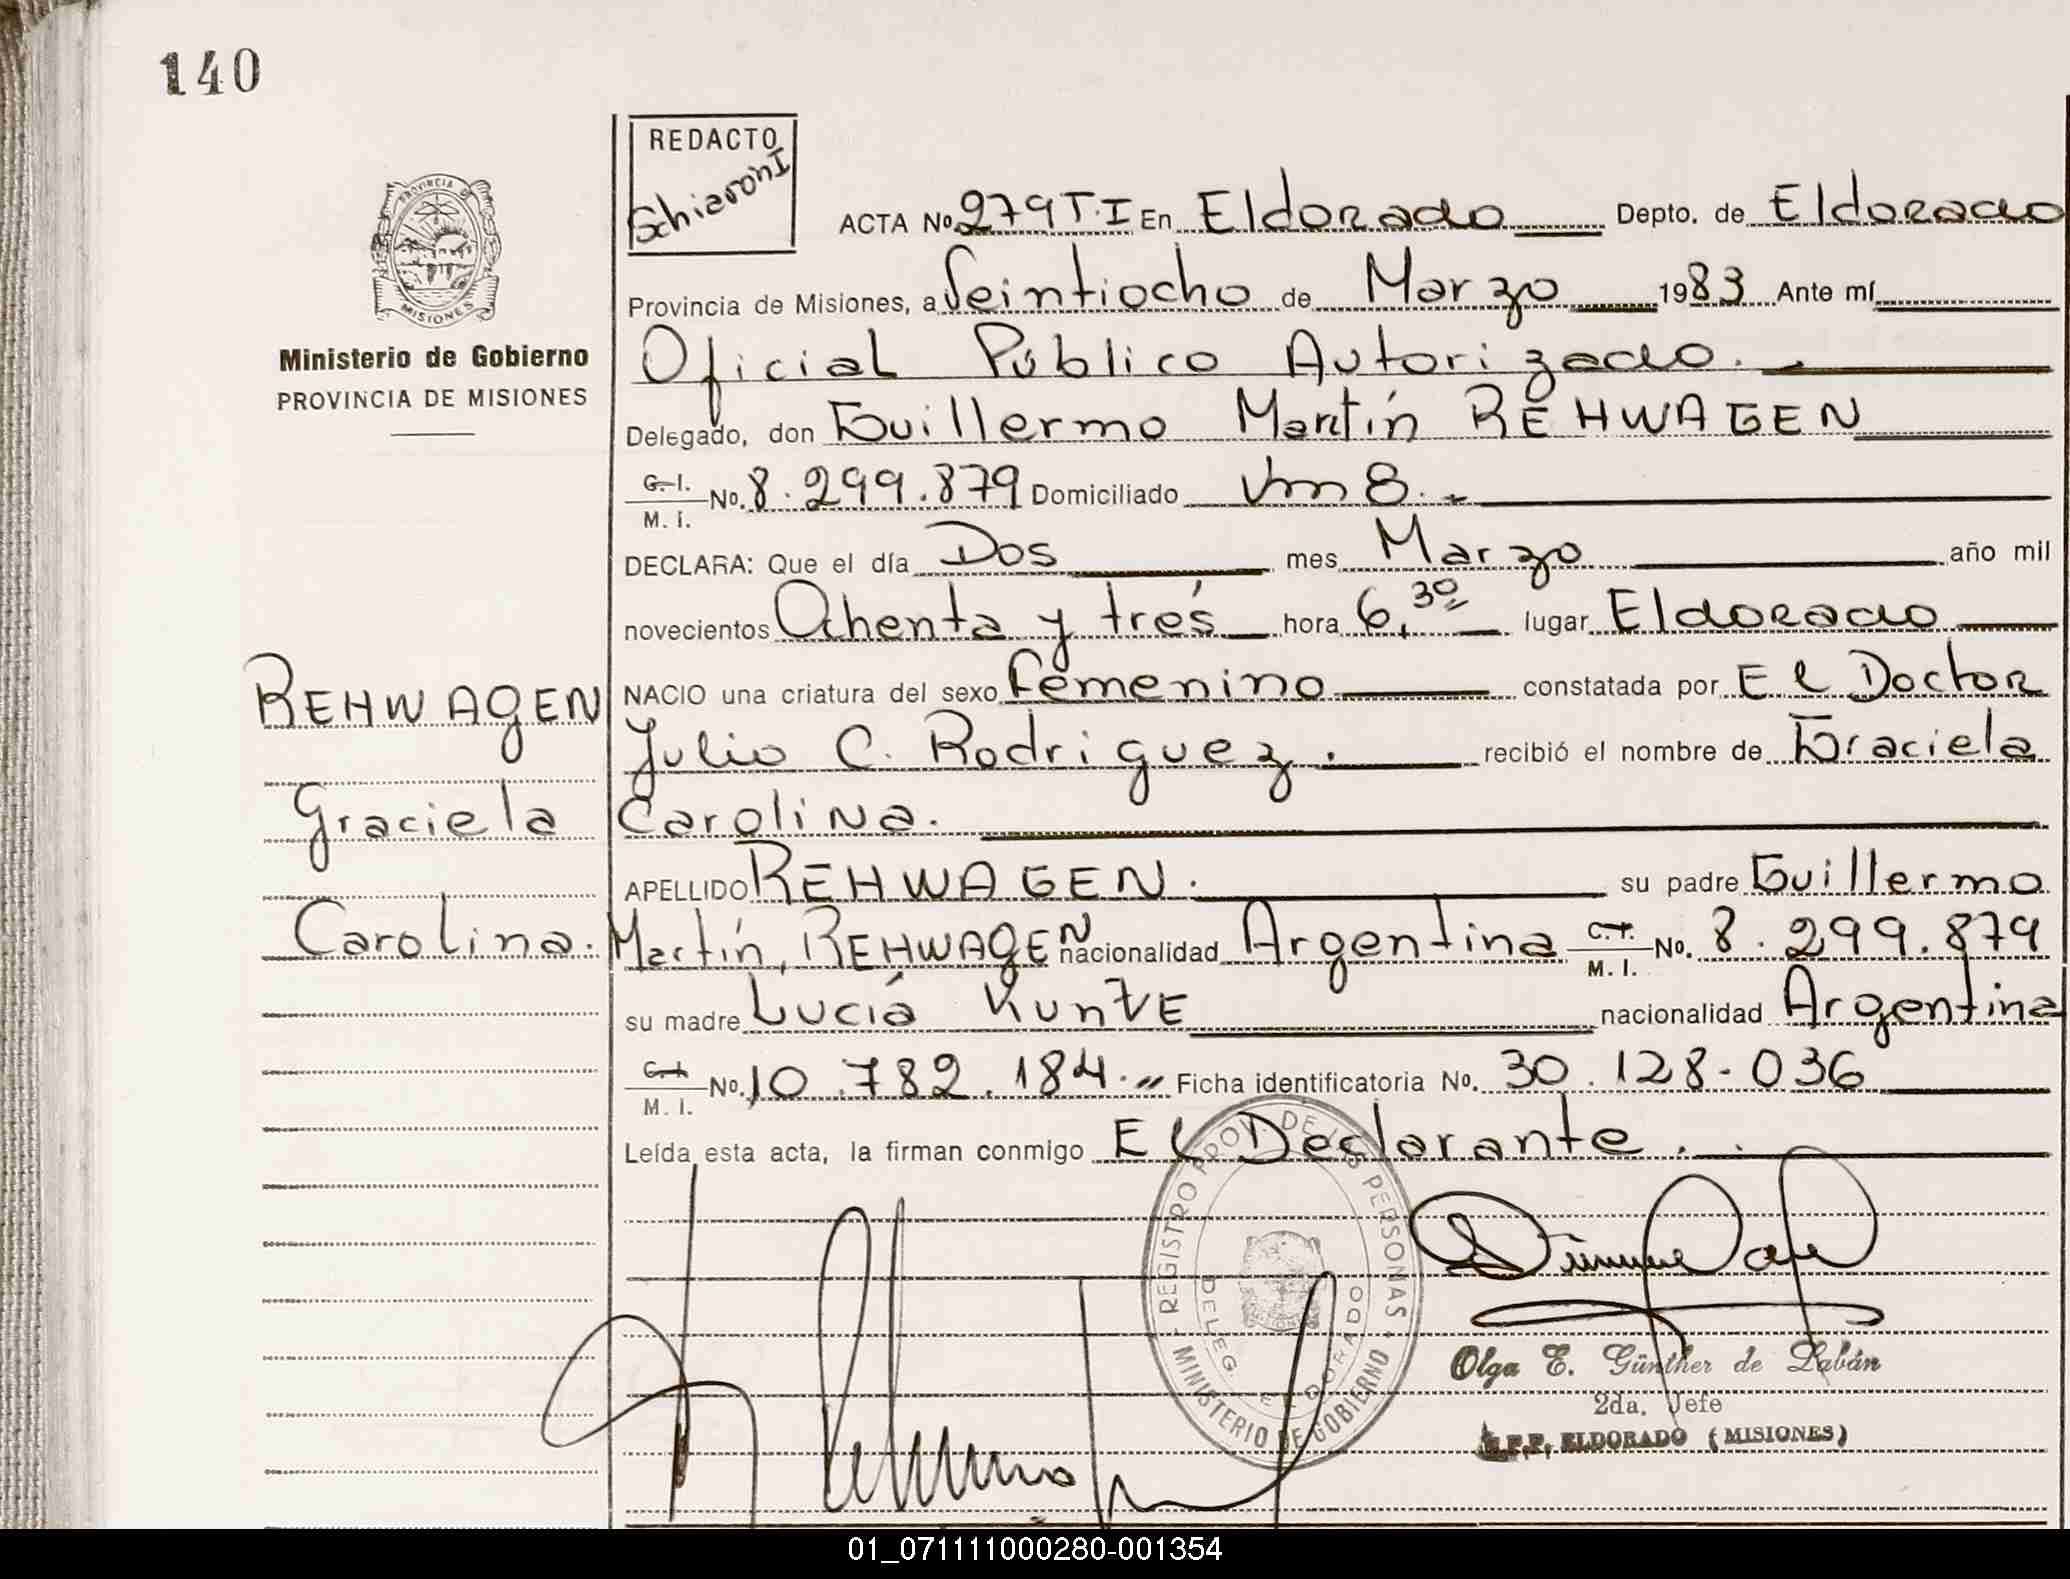 140
REDACTO
Schiaroni
PROVINCIA DE
MISIONES
Ministerio de Gobierno
PROVINCIA DE MISIONES
ACTA No 279 T.I En Eldorado Depto. de Eldorado
Provincia de Misiones, a Veintiocho de Marzo 1983 Ante mí
Oficial Público Autorizado.
Delegado, don Guillermo Martín REHWAGEN
C.I. M.I. No. 8.299.879 Domiciliado Km 8.
DECLARA: Que el día Dos mes Marzo año mil
novecientos Ochenta y trés hora 6,30 lugar Eldorado
NACIO una criatura del sexo femenino constatada por El Doctor
Julio C. Rodriguez. recibió el nombre de Graciela
Carolina.
REHWAGEN
Graciela
Carolina.
APELLIDO REHWAGEN. su padre Guillermo
Martín, REHWAGEN nacionalidad Argentina C.I. M.I. No. 8.299.879
su madre Lucía KunZE nacionalidad Argentina
C.I. M.I. No. 10.782.184.- Ficha identificatoria No. 30.128-036
Leída esta acta, la firman conmigo El Declarante.
REGISTRO PROV. DE LAS PERSONAS
MINISTERIO DE GOBIERNO
DELEG. ELDORADO
Olga E. Günther de Labán
2da. Jefe
ELDORADO (MISIONES)
01_071111000280-001354